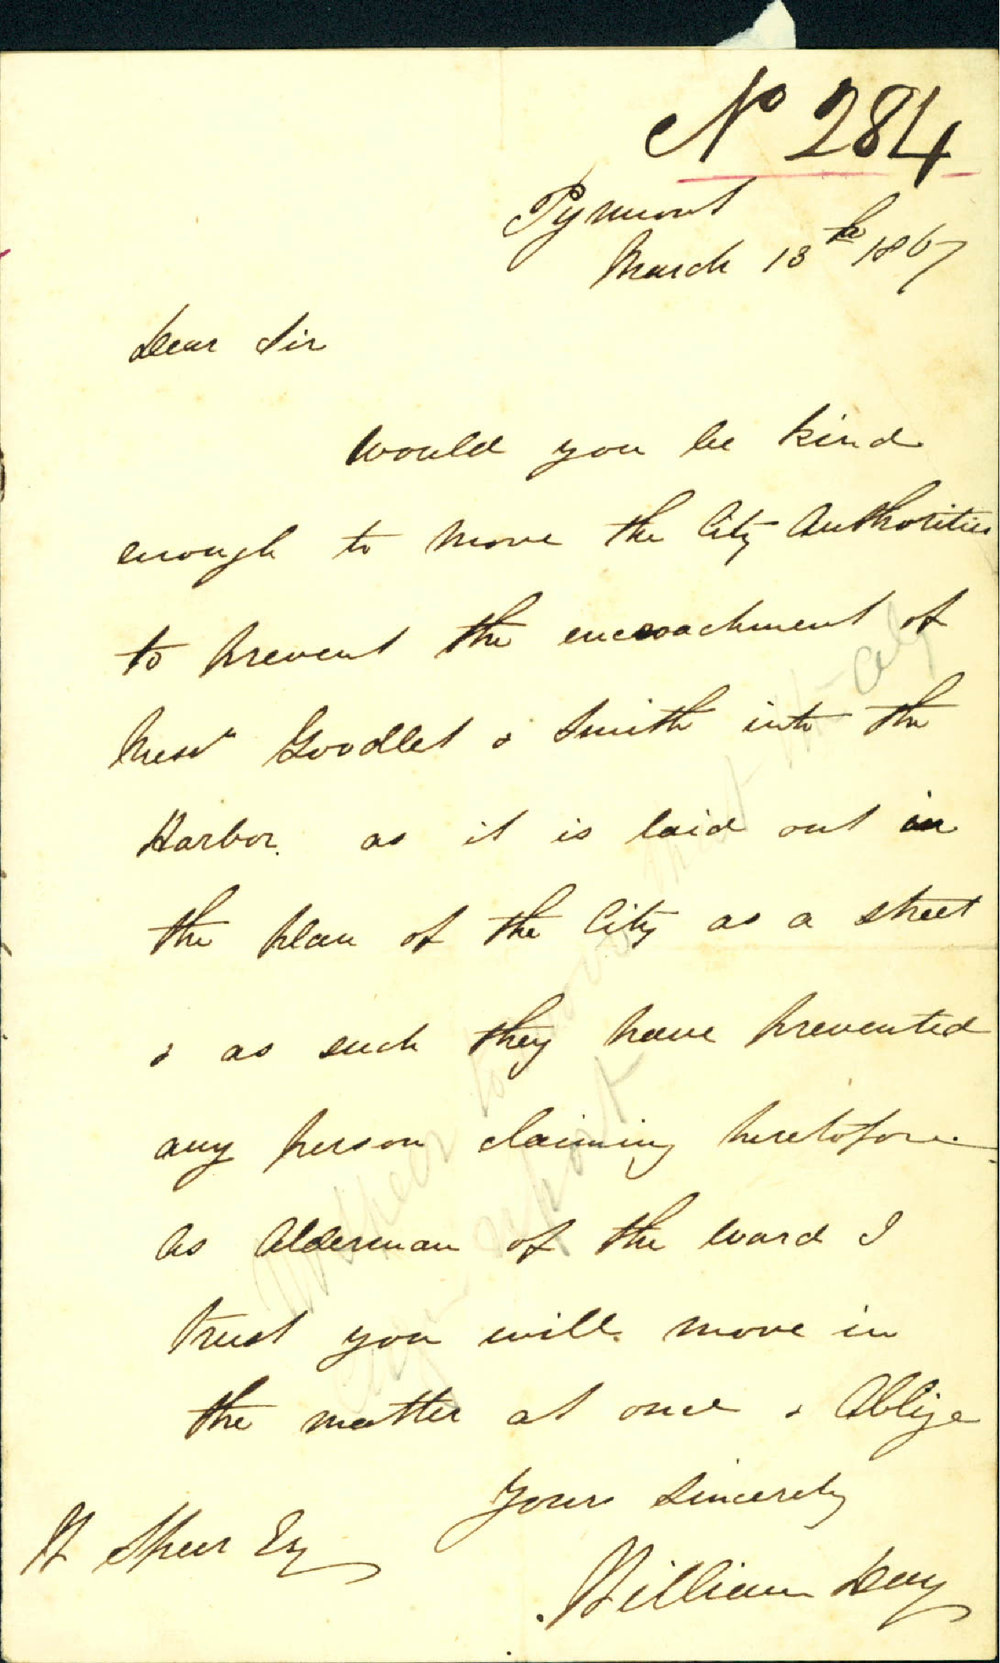 No 284
Pyrmont
March 13th 1867
Dear Sir
Would you be kind
enough to move the City Authorities
to prevent the encroachment of
Messrs Goodlet & Smith into the
Harbor. as it is laid out in
the plan of the City as a street
& as such they have prevented
any person claiming heretofore.
As Alderman of the ward I
trust you will move in
the matter at once & Oblige
Yours Sincerely
W Speer Esq
William Day